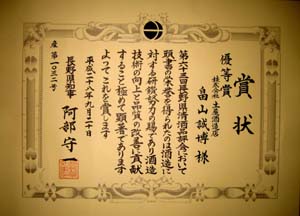 賞状
優等賞
株式会社 土屋酒造店
畠山誠博 様
第六十三回長野県清酒品評会において
頭書の栄誉を得られたのは酒造に
対する研鑽努力の賜であり酒造
技術の向上と品質の改善に貢献
すること極めて顕著であります
よってこれを賞します
平成二十八年九月二十日
長野県知事 阿部守一
産第一〇三二号